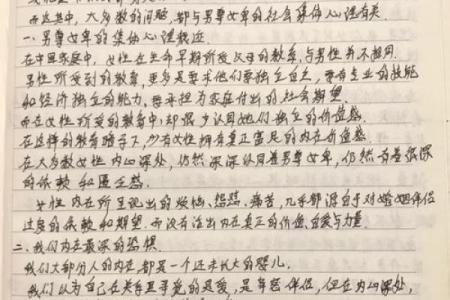 而这其中,大多数的问题,都与男尊女卑的社会集体心识有关.
一.男尊女卑的集体心识
在中国家庭中,女性在生命早期所受父母的教育,与男性并不相同.
男性所受到的教育,更多是要求他们要独立自主,要有专业的技能
和经济独立的能力,要承担为家庭付出的社会期望.
而在女性所受的教育中,却很少认同她们独立的价值感.
在这样的教育暗示下,少有女性拥有真正富足的内在价值感.
在大多数女性内心深处,仍然深深认同着男尊女卑,仍然有着很深
的依赖和匮乏感.
女性内在所呈现出的烦恼、痛苦,几乎都源自于对婚姻伴侣
过度的依赖和期望.而没有活出内在真正的价值、自爱与力量.
二、我们内在最深的恐惧.
我们大部分人的内在,都是一个还未长大的婴儿.
我们以为自己在关系里寻觅的是爱,是幸福伴侣,但在内心深处,